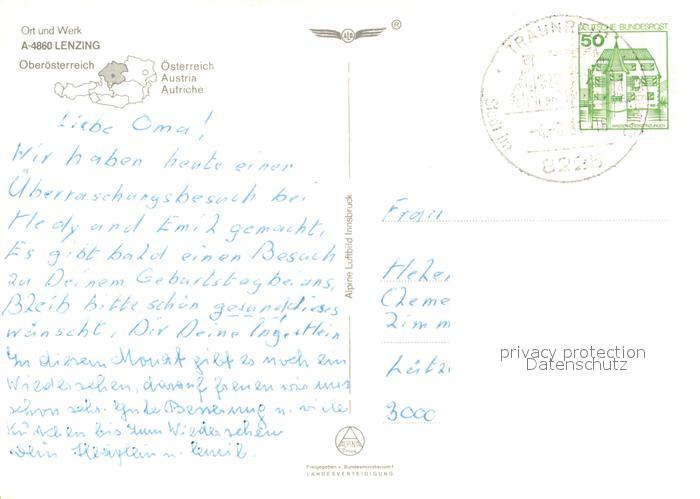 Ort und Werk
A-4860 LENZING
Oberösterreich
Österreich
Austria
Autriche
®
Liebe Oma!
Wir haben heute einen
Überraschungsbesuch bei
Hedy und Emil gemacht.
Es gibt bald einen Besuch
zu Deinem Geburtstag bei uns.
Bleib bitte schön gesund, dieses
wünscht, Dir Deine
In diesem Monat gibt es noch ein
Wiedersehen, darauf freuen wir uns
schon sehr. Gute Besserung u. viele
Küsschen bis zum Wiedersehen
Dein u. Emil.
Alpine Luftbild Innsbruck
ALPINA
Freigegeben v. Bundesministerium f.
LANDESVERTEIDIGUNG
DEUTSCHE BUNDESPOST
50
TRAUNR
8225
Frau
Zimm
3000
privacy protection
Datenschutz